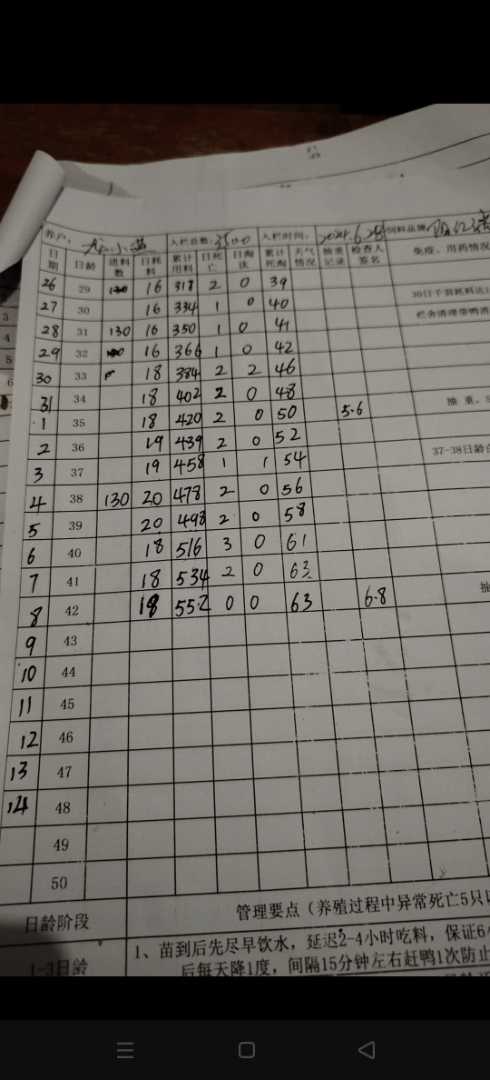 养户： 小 入栏总数： 入栏时间： 2024.6.28 饲料品牌
日期 日龄 进料数 日耗料 累计用料 日死亡 日淘汰 累计死淘 天气情况 抽重记录 检查人签名 免疫、用药情况
26 29 16 318 2 0 39
27 30 16 334 1 0 40
28 31 130 16 350 1 0 41
29 32 16 366 1 0 42
30 33 18 384 2 2 46
31 34 18 402 2 0 48
1 35 18 420 2 0 50 5.6
2 36 19 439 2 0 52
3 37 19 458 1 1 54
4 38 130 20 478 2 0 56
5 39 20 498 2 0 58
6 40 18 516 3 0 61
7 41 18 534 2 0 63
8 42 18 552 0 0 63 6.8
9 43
10 44
11 45
12 46
13 47
14 48
49
50
日龄阶段 管理要点（养殖过程中异常死亡5只
1-3日龄 1、苗到后先尽早饮水，延迟2-4小时吃料，保证6
后每天降1度，间隔15分钟左右赶鸭1次防止